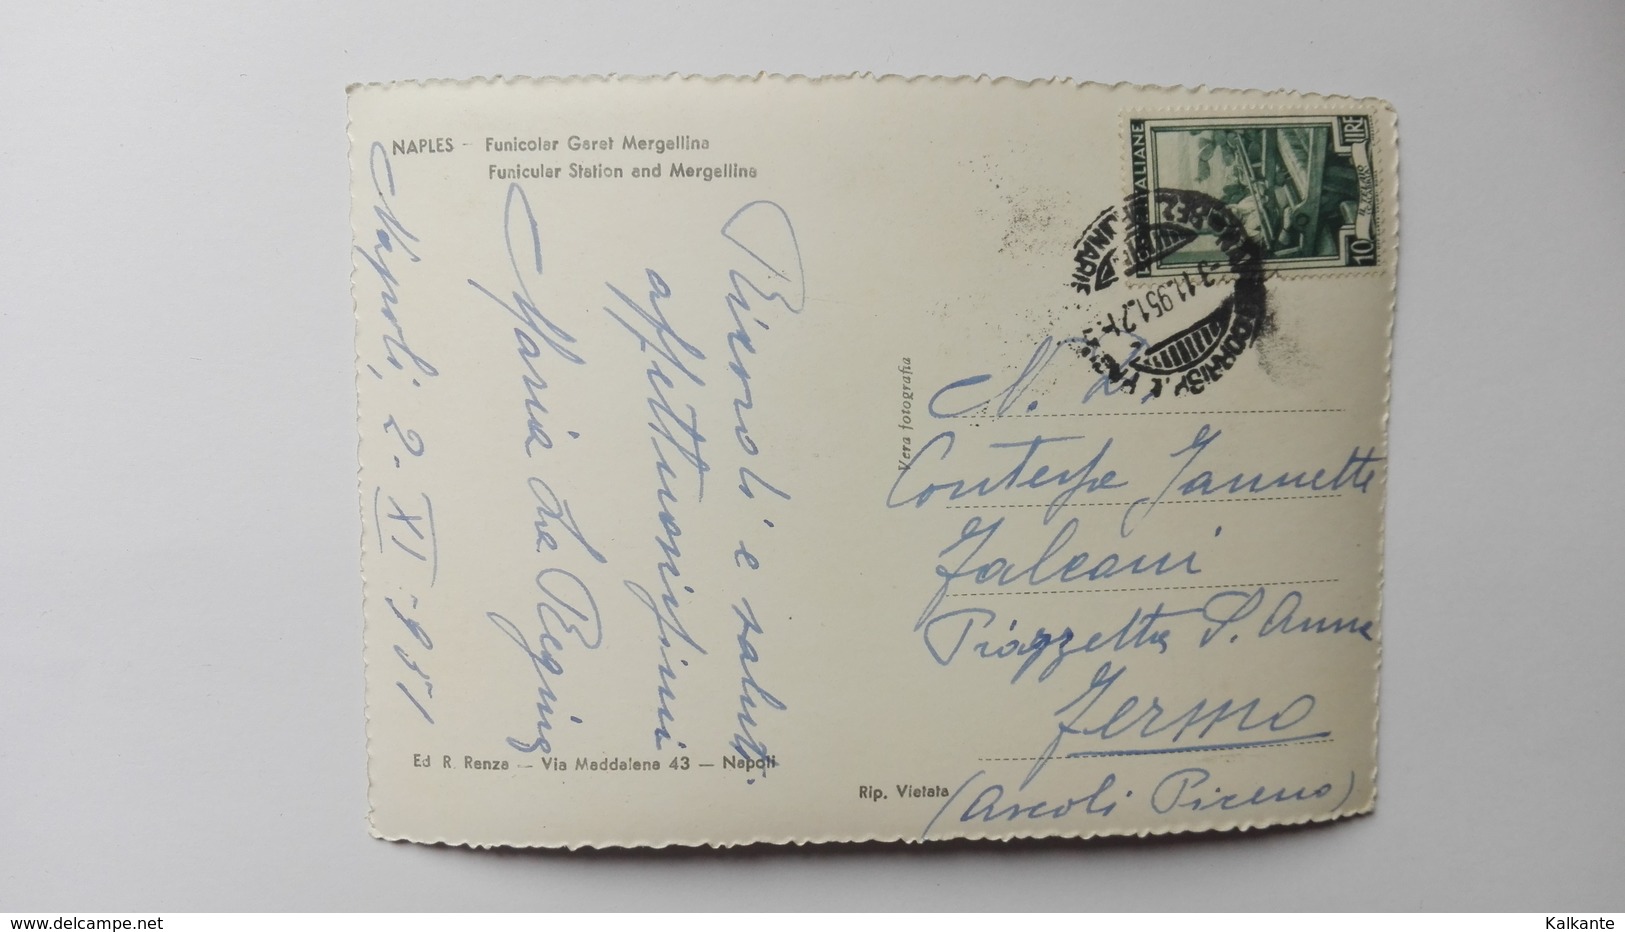 NAPLES - Funicolar Garet Mergellina
Funicular Station and Mergellina
Napoli, 2-XI-951
Ricordi e saluti
affettuosissimi
Maria La Regina
Ed. R. Renza — Via Maddalena 43 — Napoli
Vera fotografia
Rip. Vietata
ITALIANE
LIRE
10
-3.11.951.21
N. D.
Contessa Jannette
Falconi
Piazzetta S. Anna
Fermo
(Ascoli Piceno)
www.delcampe.net
Kalkante